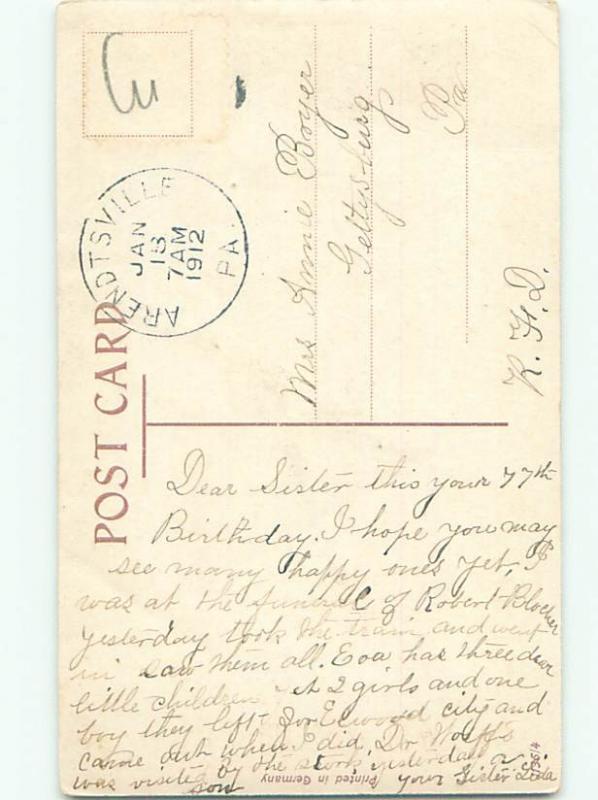 ARENDTSVILLE PA.
JAN
13
7 AM
1912
POST CARD
Mrs Annie Boyer
Gettysburg
Pa
R. F. D.
Dear Sister this your 77th
Birthday. I hope you may
see many happy ones yet, I
was at the funeral of Robert Blocher
yesterday took the train and went
in saw them all. Eva has three dear
little children 2 girls and one
boy they left for Elwood city and
came out when I did, Dr Wolffs
was visited by the stork yesterday a
son your Sister Lida
Printed in Germany